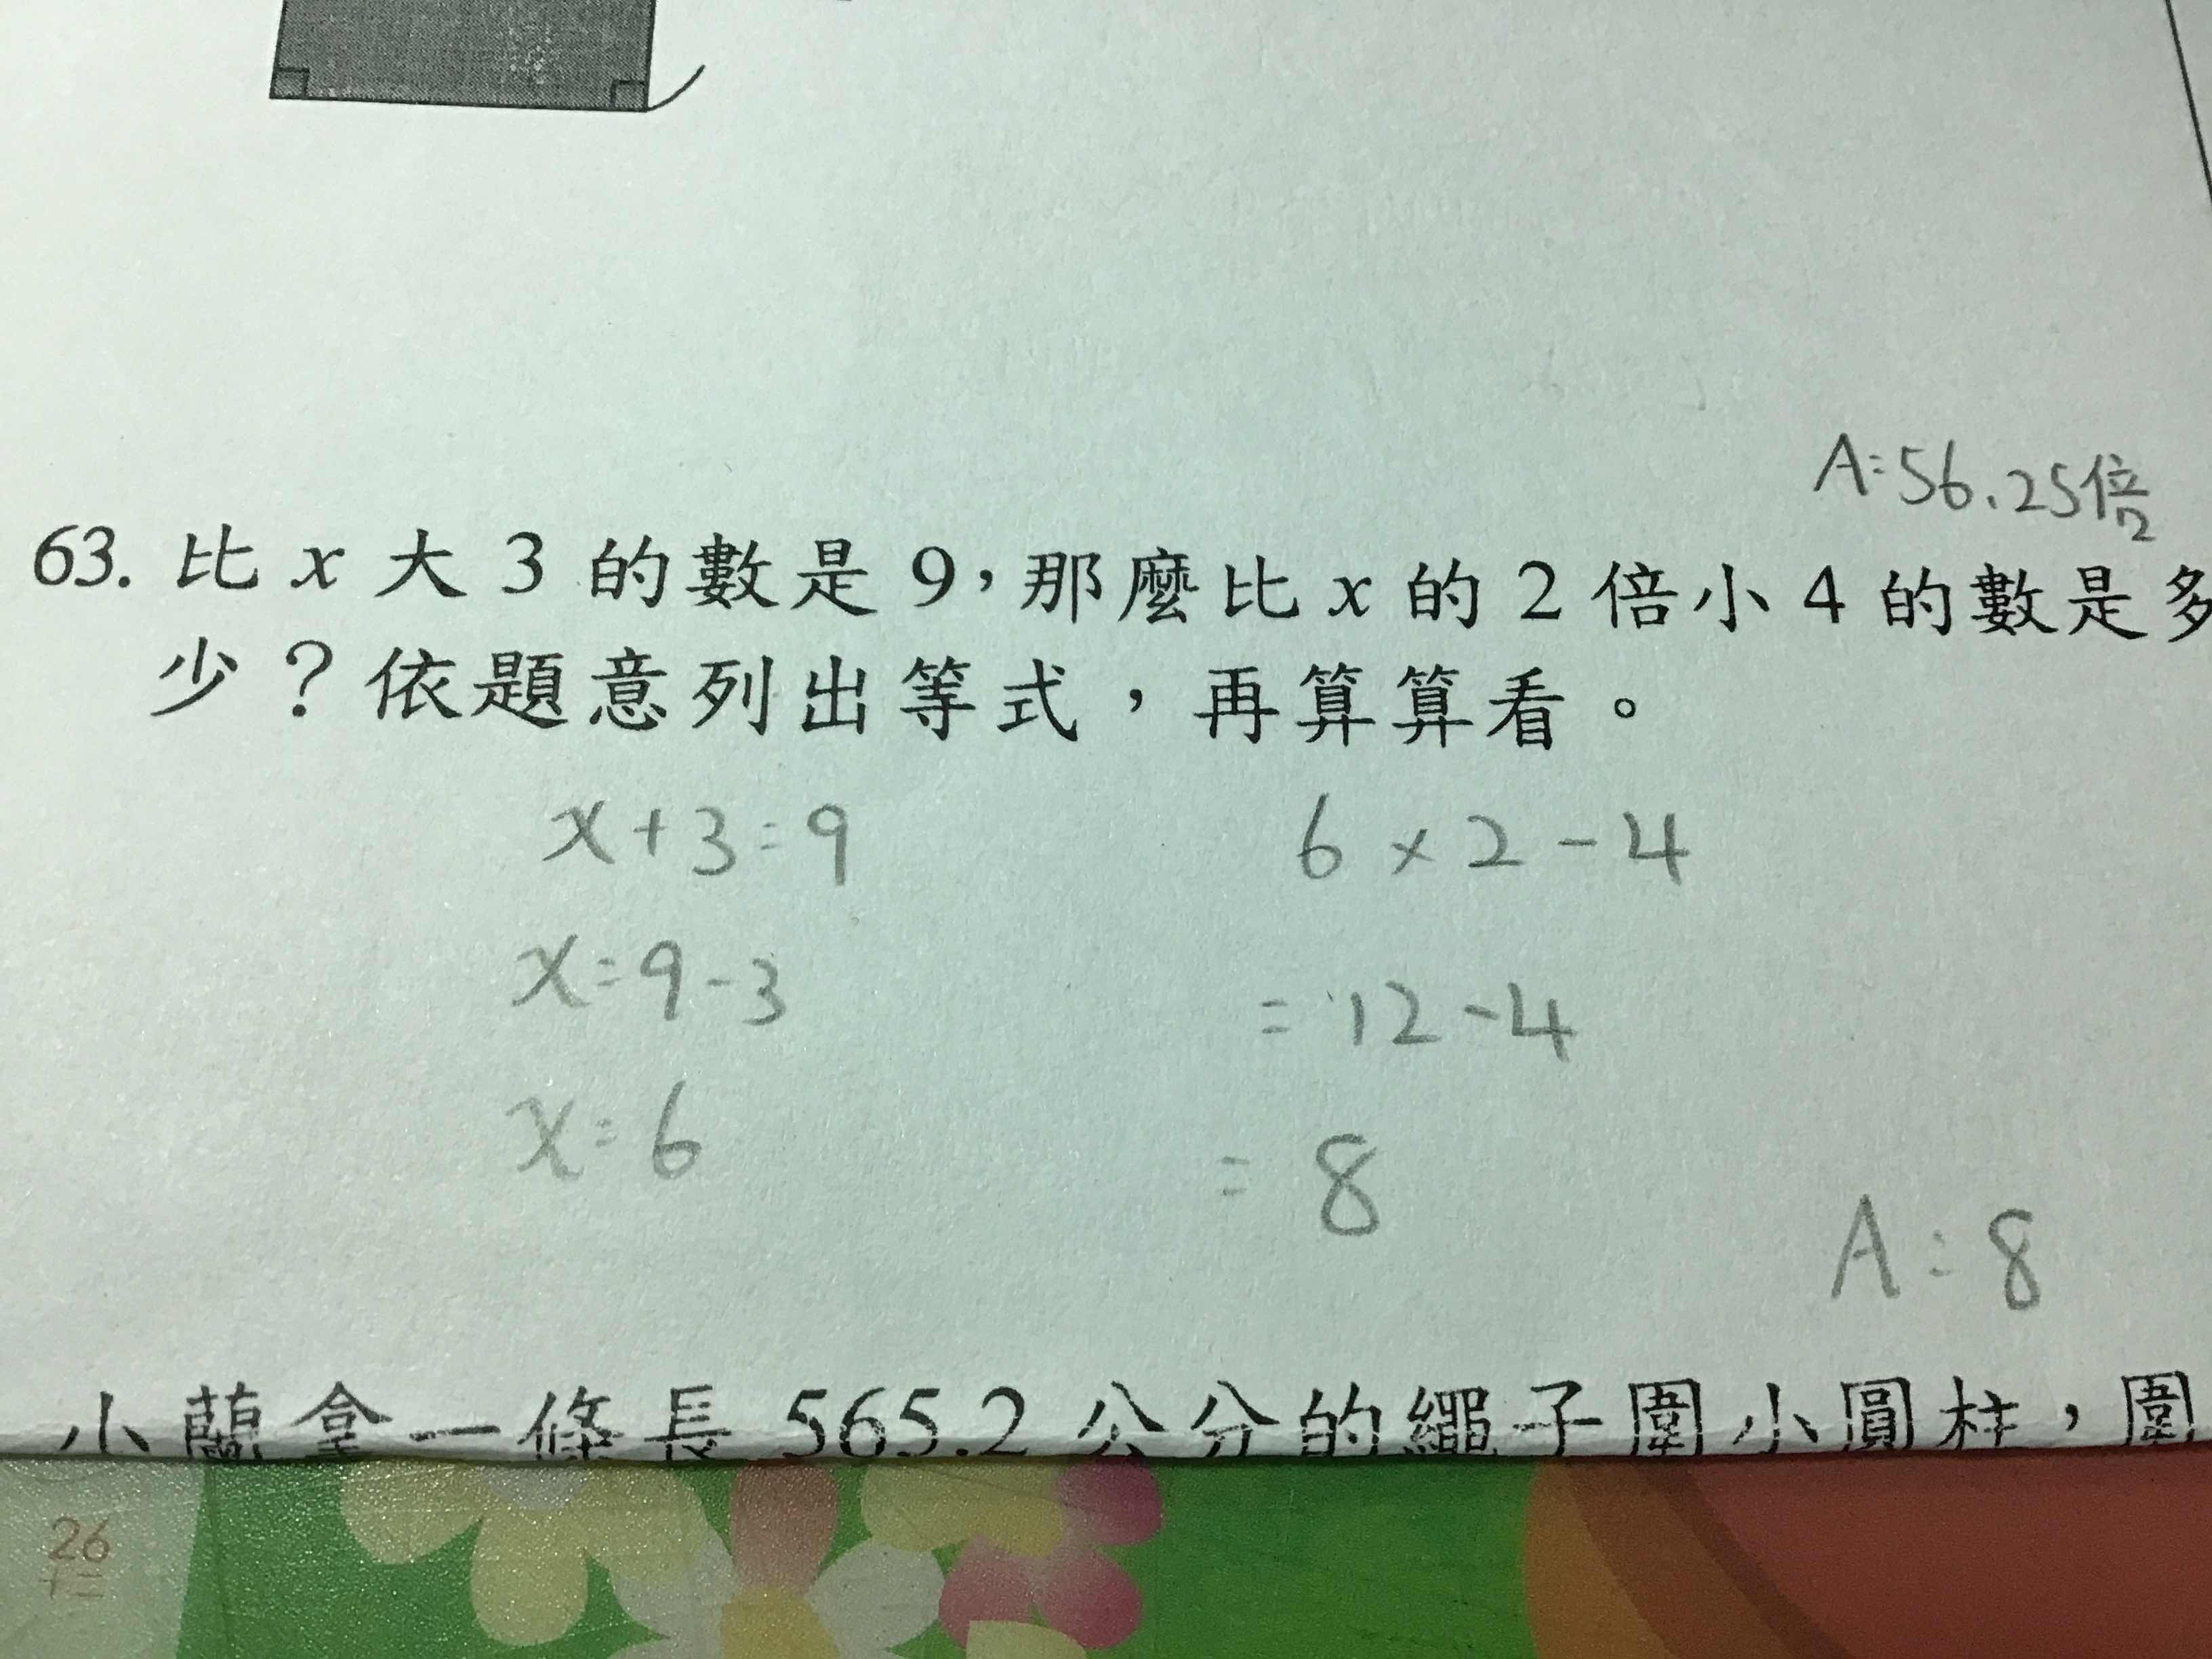 A:56.25倍
63. 比 x 大 3 的數是 9，那麼比 x 的 2 倍小 4 的數是多
少？依題意列出等式，再算算看。
x+3=9
x=9-3
x=6
6×2-4
=12-4
=8
A:8
小蘭拿一條長 565.2 公分的繩子圍小圓柱，圍
26
十二